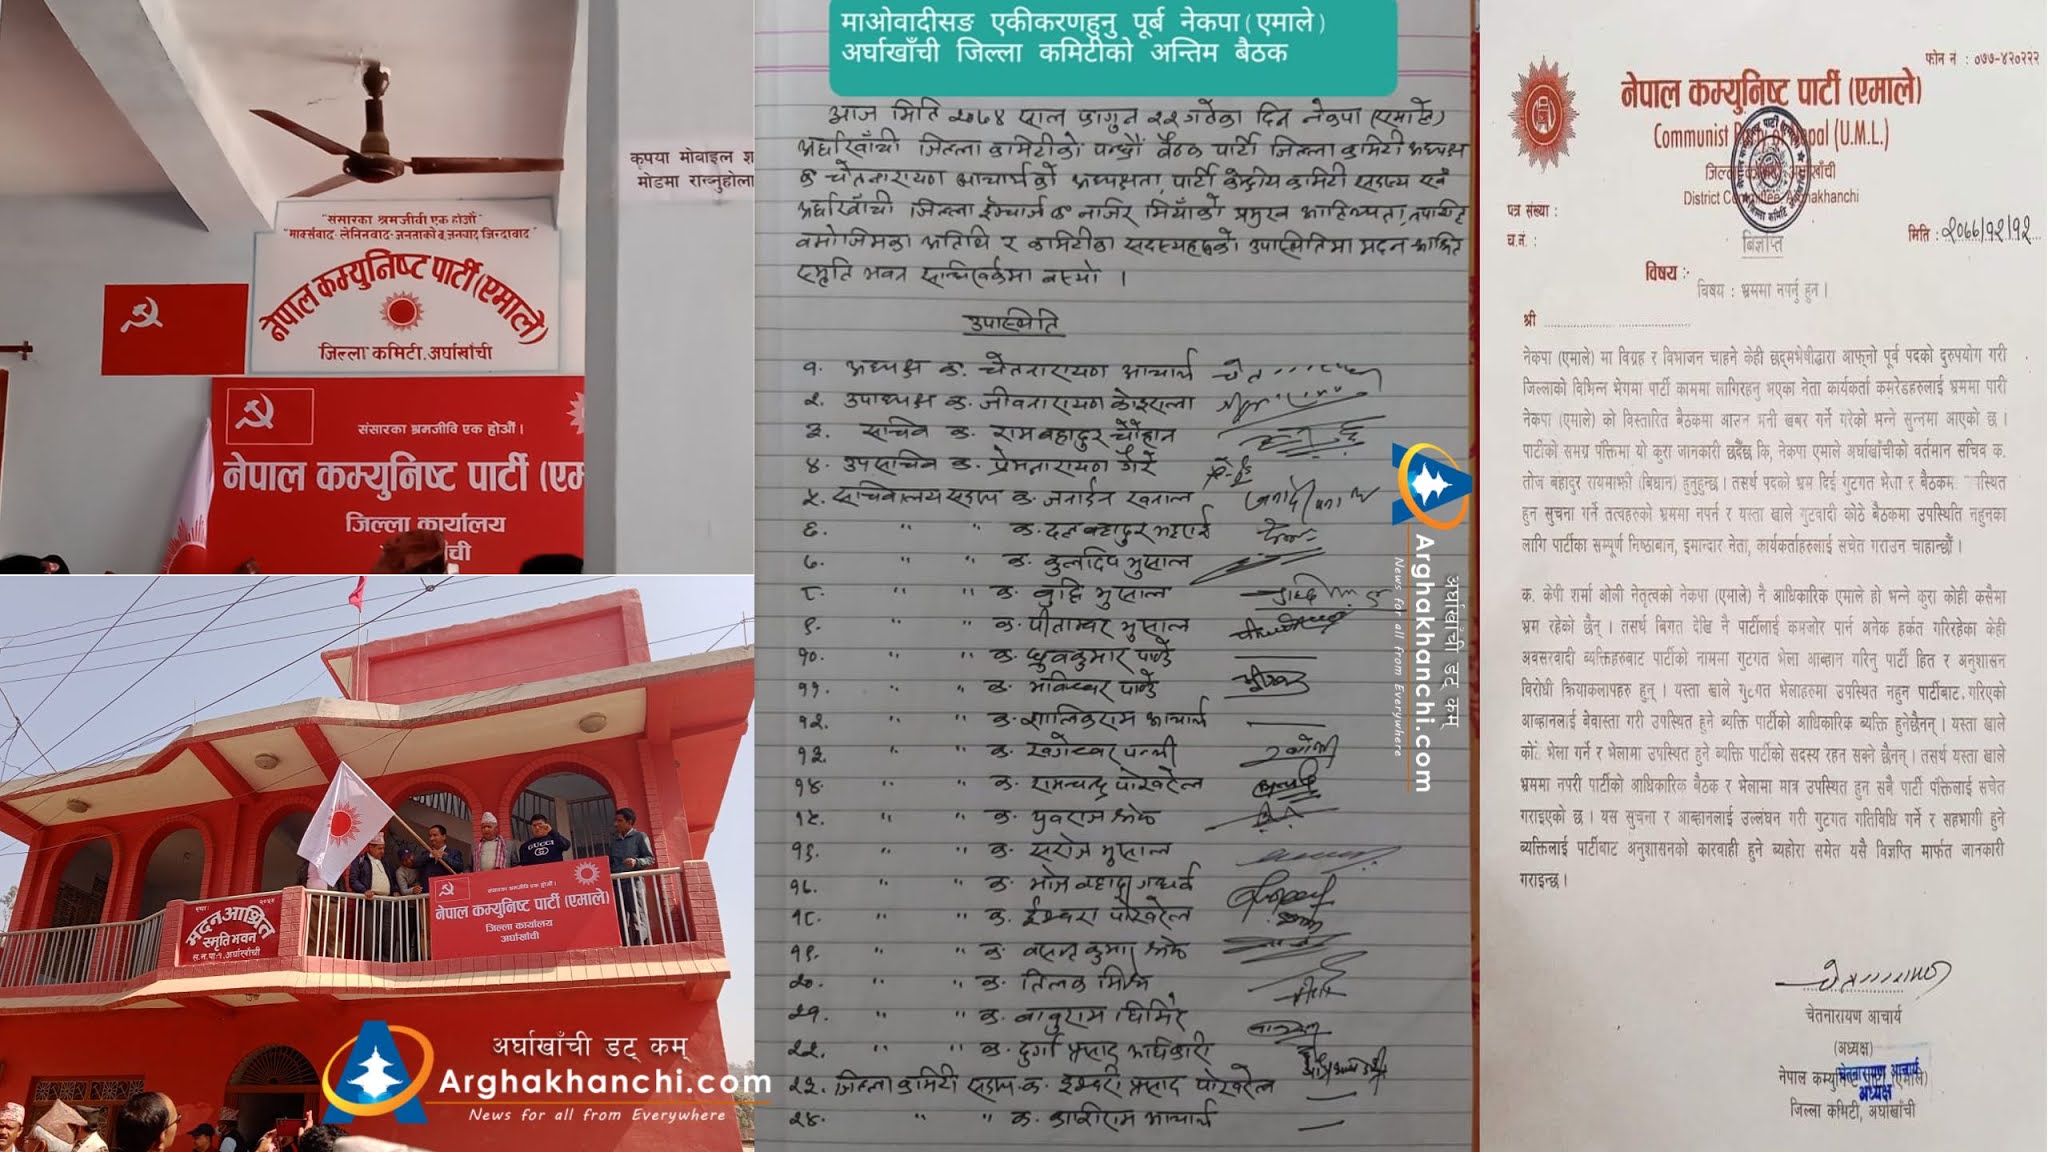 कृपया मोबाइल
मोडमा राख्नुहोला
"संसारका श्रमजीवी एक होऔं"
"मार्क्सवाद-लेनिनवाद-जनताको ब.जनवाद जिन्दावाद"
नेपाल कम्युनिष्ट पार्टी (एमाले)
जिल्ला कमिटी, अर्घाखाँची
संसारका श्रमजीवि एक होऔं।
नेपाल कम्युनिष्ट पार्टी
जिल्ला कार्यालय
मदन आश्रित
स्मृति भवन
संसारका श्रमजीवि एक होऔं।
नेपाल कम्युनिष्ट पार्टी (एमाले)
जिल्ला कार्यालय
अर्घाखाँची
अर्घाखाँची डट् कम्
Arghakhanchi.com
News for all from Everywhere
माओवादीसङ एकीकरणहुनु पूर्ब नेकपा(एमाले)
अर्घाखाँची जिल्ला कमिटीको अन्तिम बैठक
आज मिति २०७४ साल फागुन २२ गतेका दिन नेकपा (एमाले)
अर्घाखाँची जिल्ला कमिटीको पन्ध्रौं बैठक पार्टी जिल्ला कमिटी अध्यक्ष
क चेतनारायण आचार्यको अध्यक्षता, पार्टी केन्द्रीय कमिटी सदस्य एवं
अर्घाखाँची जिल्ला इन्चार्ज क नजिर मियाँको प्रमुख आतिथ्यता, तपसिल
बमोजिमका अतिथि र कमिटीका सदस्यहरुको उपस्थितिमा मदन आश्रित
स्मृति भवन सन्धिखर्कमा बस्यो ।
उपस्थिति
१. अध्यक्ष क. चेतनारायण आचार्य
२. उपाध्यक्ष क. जीवनारायण कोइराला
३. सचिव क. रामबहादुर चौहान
४. उपसचिव क. प्रेमनारायण
५. सचिवालय सदस्य क. जनार्दन खनाल
६. " " क. दल बहादुर भट्टराई
७. " " क. कुलदिप भुसाल
८. " " क. बुद्धि भुसाल
९. " " क. पीताम्बर भुसाल
१०. " " क. ध्रुवकुमार पाण्डे
११. " " क. भविश्वर पाण्डे
१२. " " क. शालिकराम आचार्य
१३. " " क. खगेश्वर पन्थी
१४. " " क. रामचन्द्र पोखरेल
१५. " " क. युवराज श्रेष्ठ
१६. " " क. सरोज भुसाल
१७. " " क. भोज बहादुर गन्धर्व
१८. " " क. ईश्वरा पोखरेल
१९. " " क. बसन्त कुमार श्रेष्ठ
२०. " " क. तिलक मिश्र
२१. " " क. बाबुराम घिमिरे
२२. " " क. दुर्गा प्रसाद अधिकारी
२३. जिल्ला कमिटी सदस्य क. ईश्वरी प्रसाद पोखरेल
२४. " " क. काशीराम आचार्य
अर्घाखाँची डट् कम्
Arghakhanchi.com
News for all from Everywhere
फोन नं : ०७७-४२०२२२
नेपाल कम्युनिष्ट पार्टी (एमाले)
Communist Party of Nepal (U.M.L.)
जिल्ला कमिटी, अर्घाखाँची
District Committee, Arghakhanchi
पत्र संख्या :
च.नं. :
मिति : २०७७/१२/१२
बिज्ञप्ति
विषय :-
विषय : भ्रममा नपर्नु हुन ।
श्री
नेकपा (एमाले) मा विग्रह र विभाजन चाहने केही छद्मभेषीद्वारा आफ्नो पूर्व पदको दुरुपयोग गरी
जिल्लाको विभिन्न भेगमा पार्टी काममा लागिरहनु भएका नेता कार्यकर्ता कमरेडहरुलाई भ्रममा पारी
नेकपा (एमाले) को विस्तारित बैठकमा आउन भनी खबर गर्ने गरेको भन्ने सुन्नमा आएको छ ।
पार्टीको समग्र पंक्तिमा यो कुरा जानकारी छदैँछ कि, नेकपा एमाले अर्घाखाँचीको वर्तमान सचिव क.
तोज बहादुर रायमाझी (बिधान) हुनुहुन्छ । तसर्थ पदको भ्रम दिई गुटगत भेला र बैठकमा उपस्थित
हुन सुचना गर्ने तत्वहरुको भ्रममा नपर्न र यस्ता खाले गुटवादी कोठे बैठकमा उपस्थिति नहुनका
लागि पार्टीका सम्पूर्ण निष्ठाबान, इमान्दार नेता, कार्यकर्ताहरुलाई सचेत गराउन चाहान्छौं ।
क. केपी शर्मा ओली नेतृत्वको नेकपा (एमाले) नै आधिकारिक एमाले हो भन्ने कुरा कोही कसैमा
भ्रम रहेको छैन् । तसर्थ बिगत देखि नै पार्टीलाई कमजोर पार्न अनेक हर्कत गरिरहेका केही
अवसरवादी ब्यक्तिहरुबाट पार्टीको नाममा गुटगत भेला आब्हान गरिनु पार्टी हित र अनुशासन
विरोधी क्रियाकलापहरु हुन् । यस्ता खाले गुटगत भेलाहरुमा उपस्थित नहुन पार्टीबाट गरिएको
आब्हानलाई बेवास्ता गरी उपस्थित हुने ब्यक्ति पार्टीको आधिकारिक ब्यक्ति हुनेछैनन् । यस्ता खाले
कोठे भेला गर्ने र भेलामा उपस्थित हुने ब्यक्ति पार्टीको सदस्य रहन सक्ने छैनन् । तसर्थ यस्ता खाले
भ्रममा नपरी पार्टीको आधिकारिक बैठक र भेलामा मात्र उपस्थित हुन सबै पार्टी पंक्तिलाई सचेत
गराइएको छ । यस सुचना र आब्हानलाई उल्लंघन गरी गुटगत गतिविधि गर्ने र सहभागी हुने
ब्यक्तिलाई पार्टीबाट अनुशासनको कारवाही हुने ब्यहोरा समेत यसै विज्ञप्ति मार्फत जानकारी
गराइन्छ ।
चेतनारायण आचार्य
(अध्यक्ष)
चेतनारायण आचार्य
अध्यक्ष
जिल्ला कमिटी, अर्घाखाँची